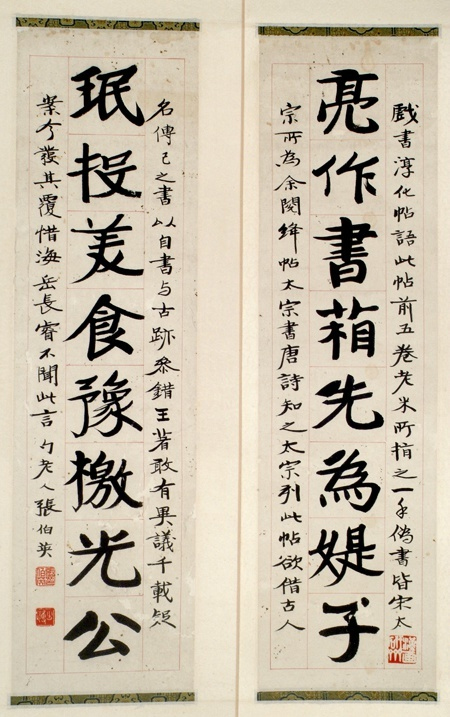 戲書淳化帖語此帖前五卷老米所指之一手偽書皆宋太
亮作書箱先為媞子
宗所為余閱絳帖太宗書唐詩知之太宗刊此帖欲借古人
名傳己之書以自書与古跡參錯王著敢有異議千載疑
珉投美食豫檄光公
案今發其覆惜海岳長睿不聞此言 勺老人張伯英